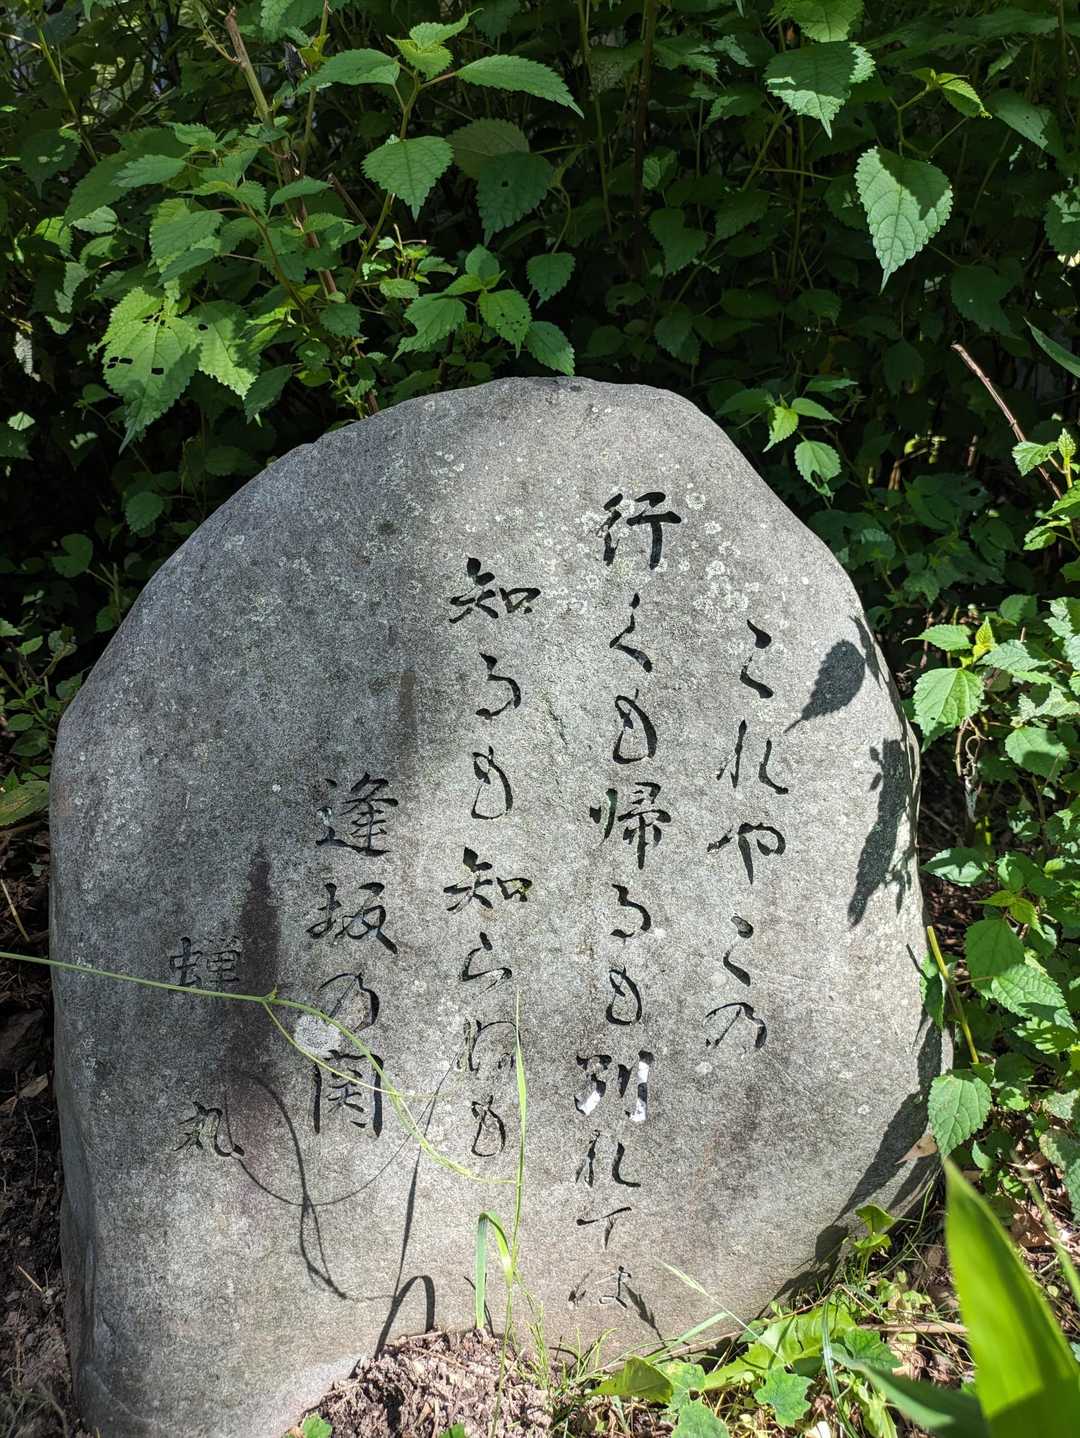 これやこの
行くも帰るも別れては
知るも知らぬも
逢坂の関
蝉丸